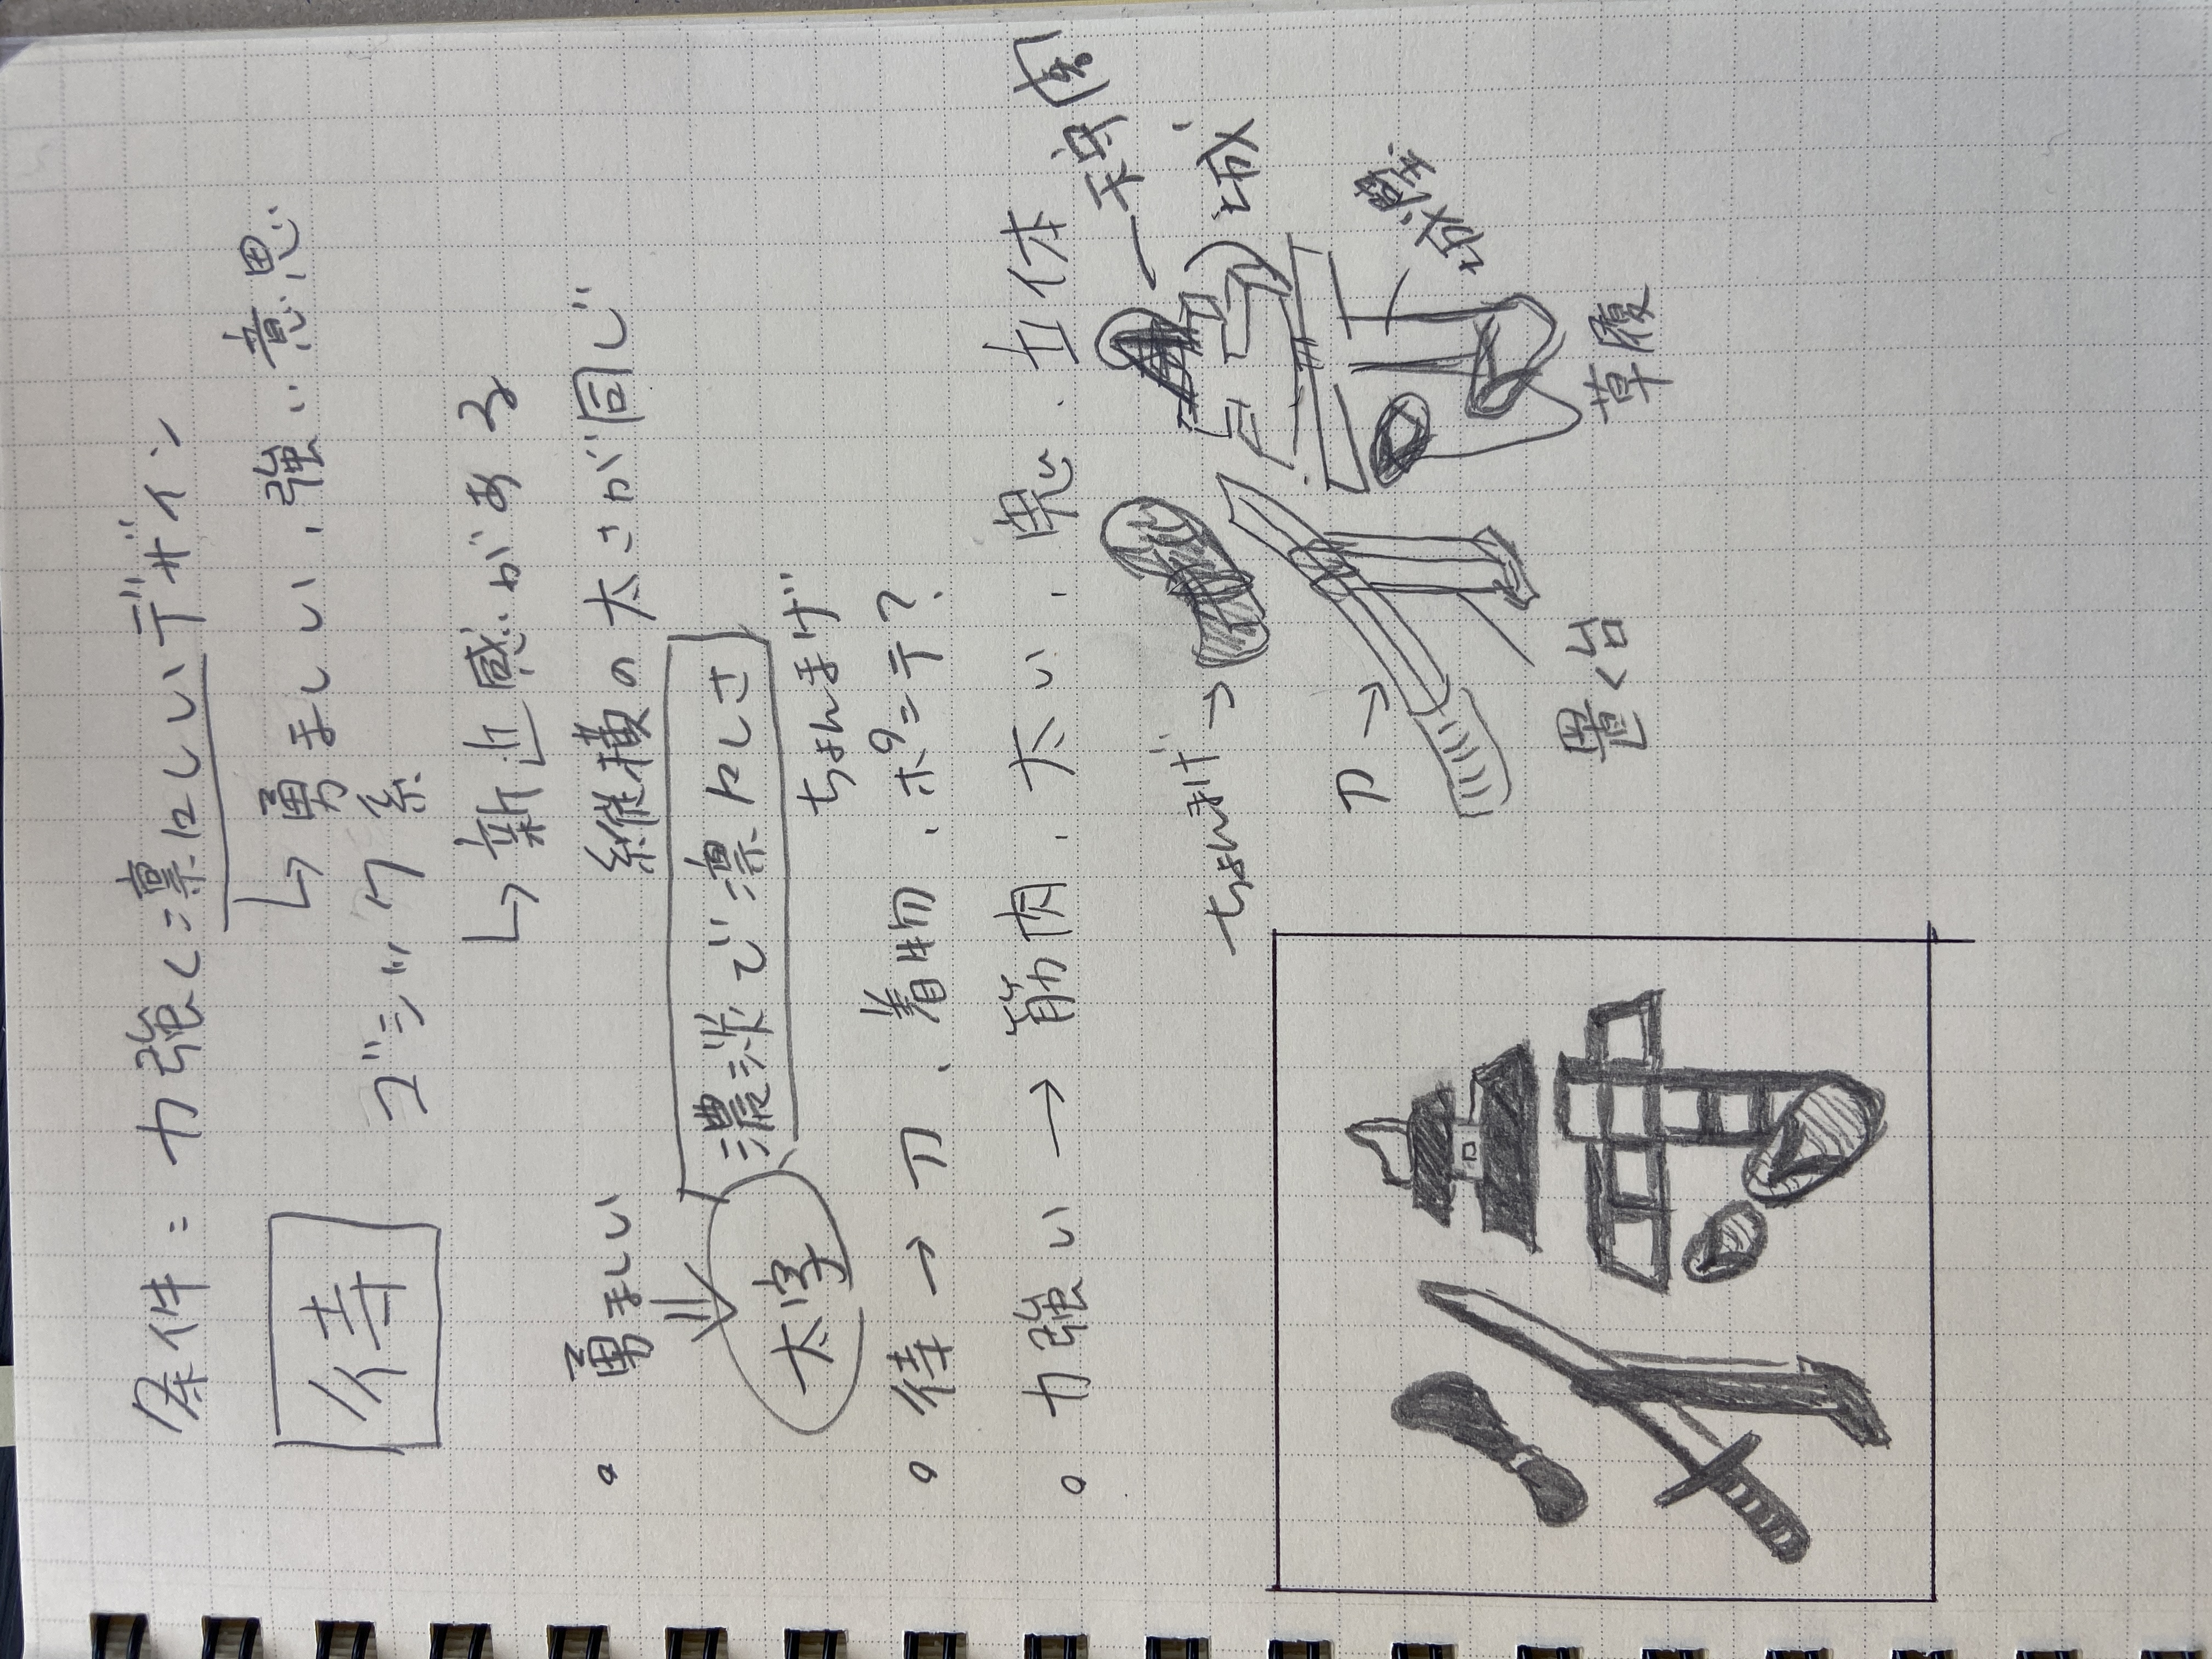 条件：力強く凛々しいデザイン
↳勇ましい、強い意思
待
ゴシック系
↳新近感がある
縦横の太さが同じ
。勇ましい
⇓
太字
濃淡で凛々しさ
ちょんまげ
。待→刀、着物、ポニテ？
。力強い→筋肉、太い、鬼、立体
天守閣
ちょんまげ→
城
刀→
城壁
置く台
草履